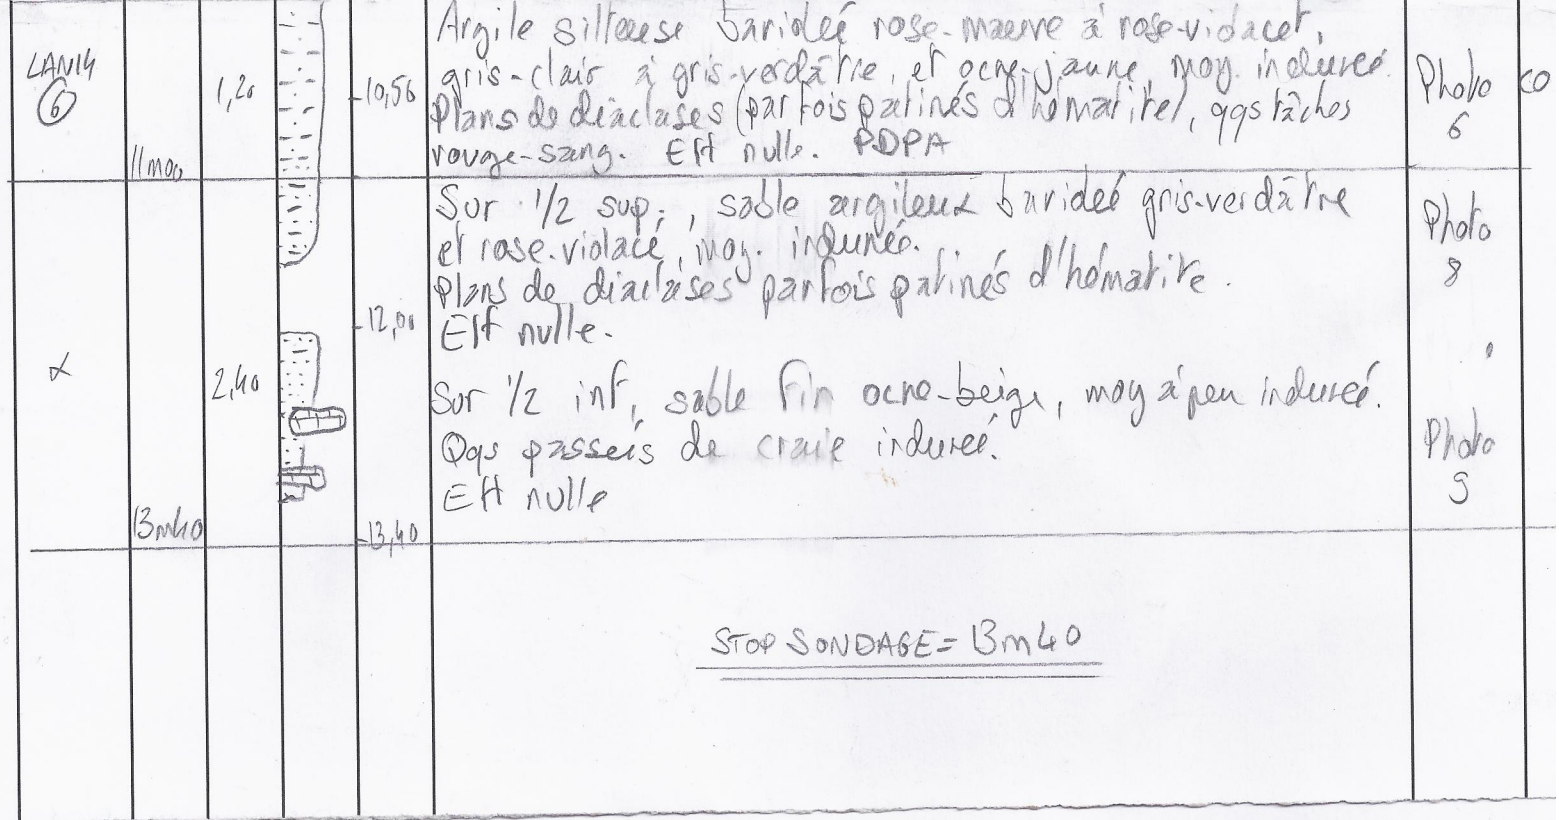 Argile silteuse bariolée rose-mauve à rose-violacé,
gris-clair à gris-verdâtre, et ocre-jaune, moy. indurée.
LANI4
6
1,20
10,56
Plans de diaclases (parfois patinés d'hématite), qqs tâches
rouge-sang. Eff nulle. PDPA
11m00
Photo
6
CO
Sur 1/2 sup., sable argileux bariolé gris-verdâtre
et rose-violacé, moy. indurée.
Plans de diaclases parfois patinés d'hématite.
12,00
Eff nulle.
Photo
8
α
2,40
Sur 1/2 inf, sable fin ocre-beige, moy à peu induré.
Qqs passées de craie indurée.
Eff nulle
Photo
9
13m40
13,40
STOP SONDAGE = 13m40